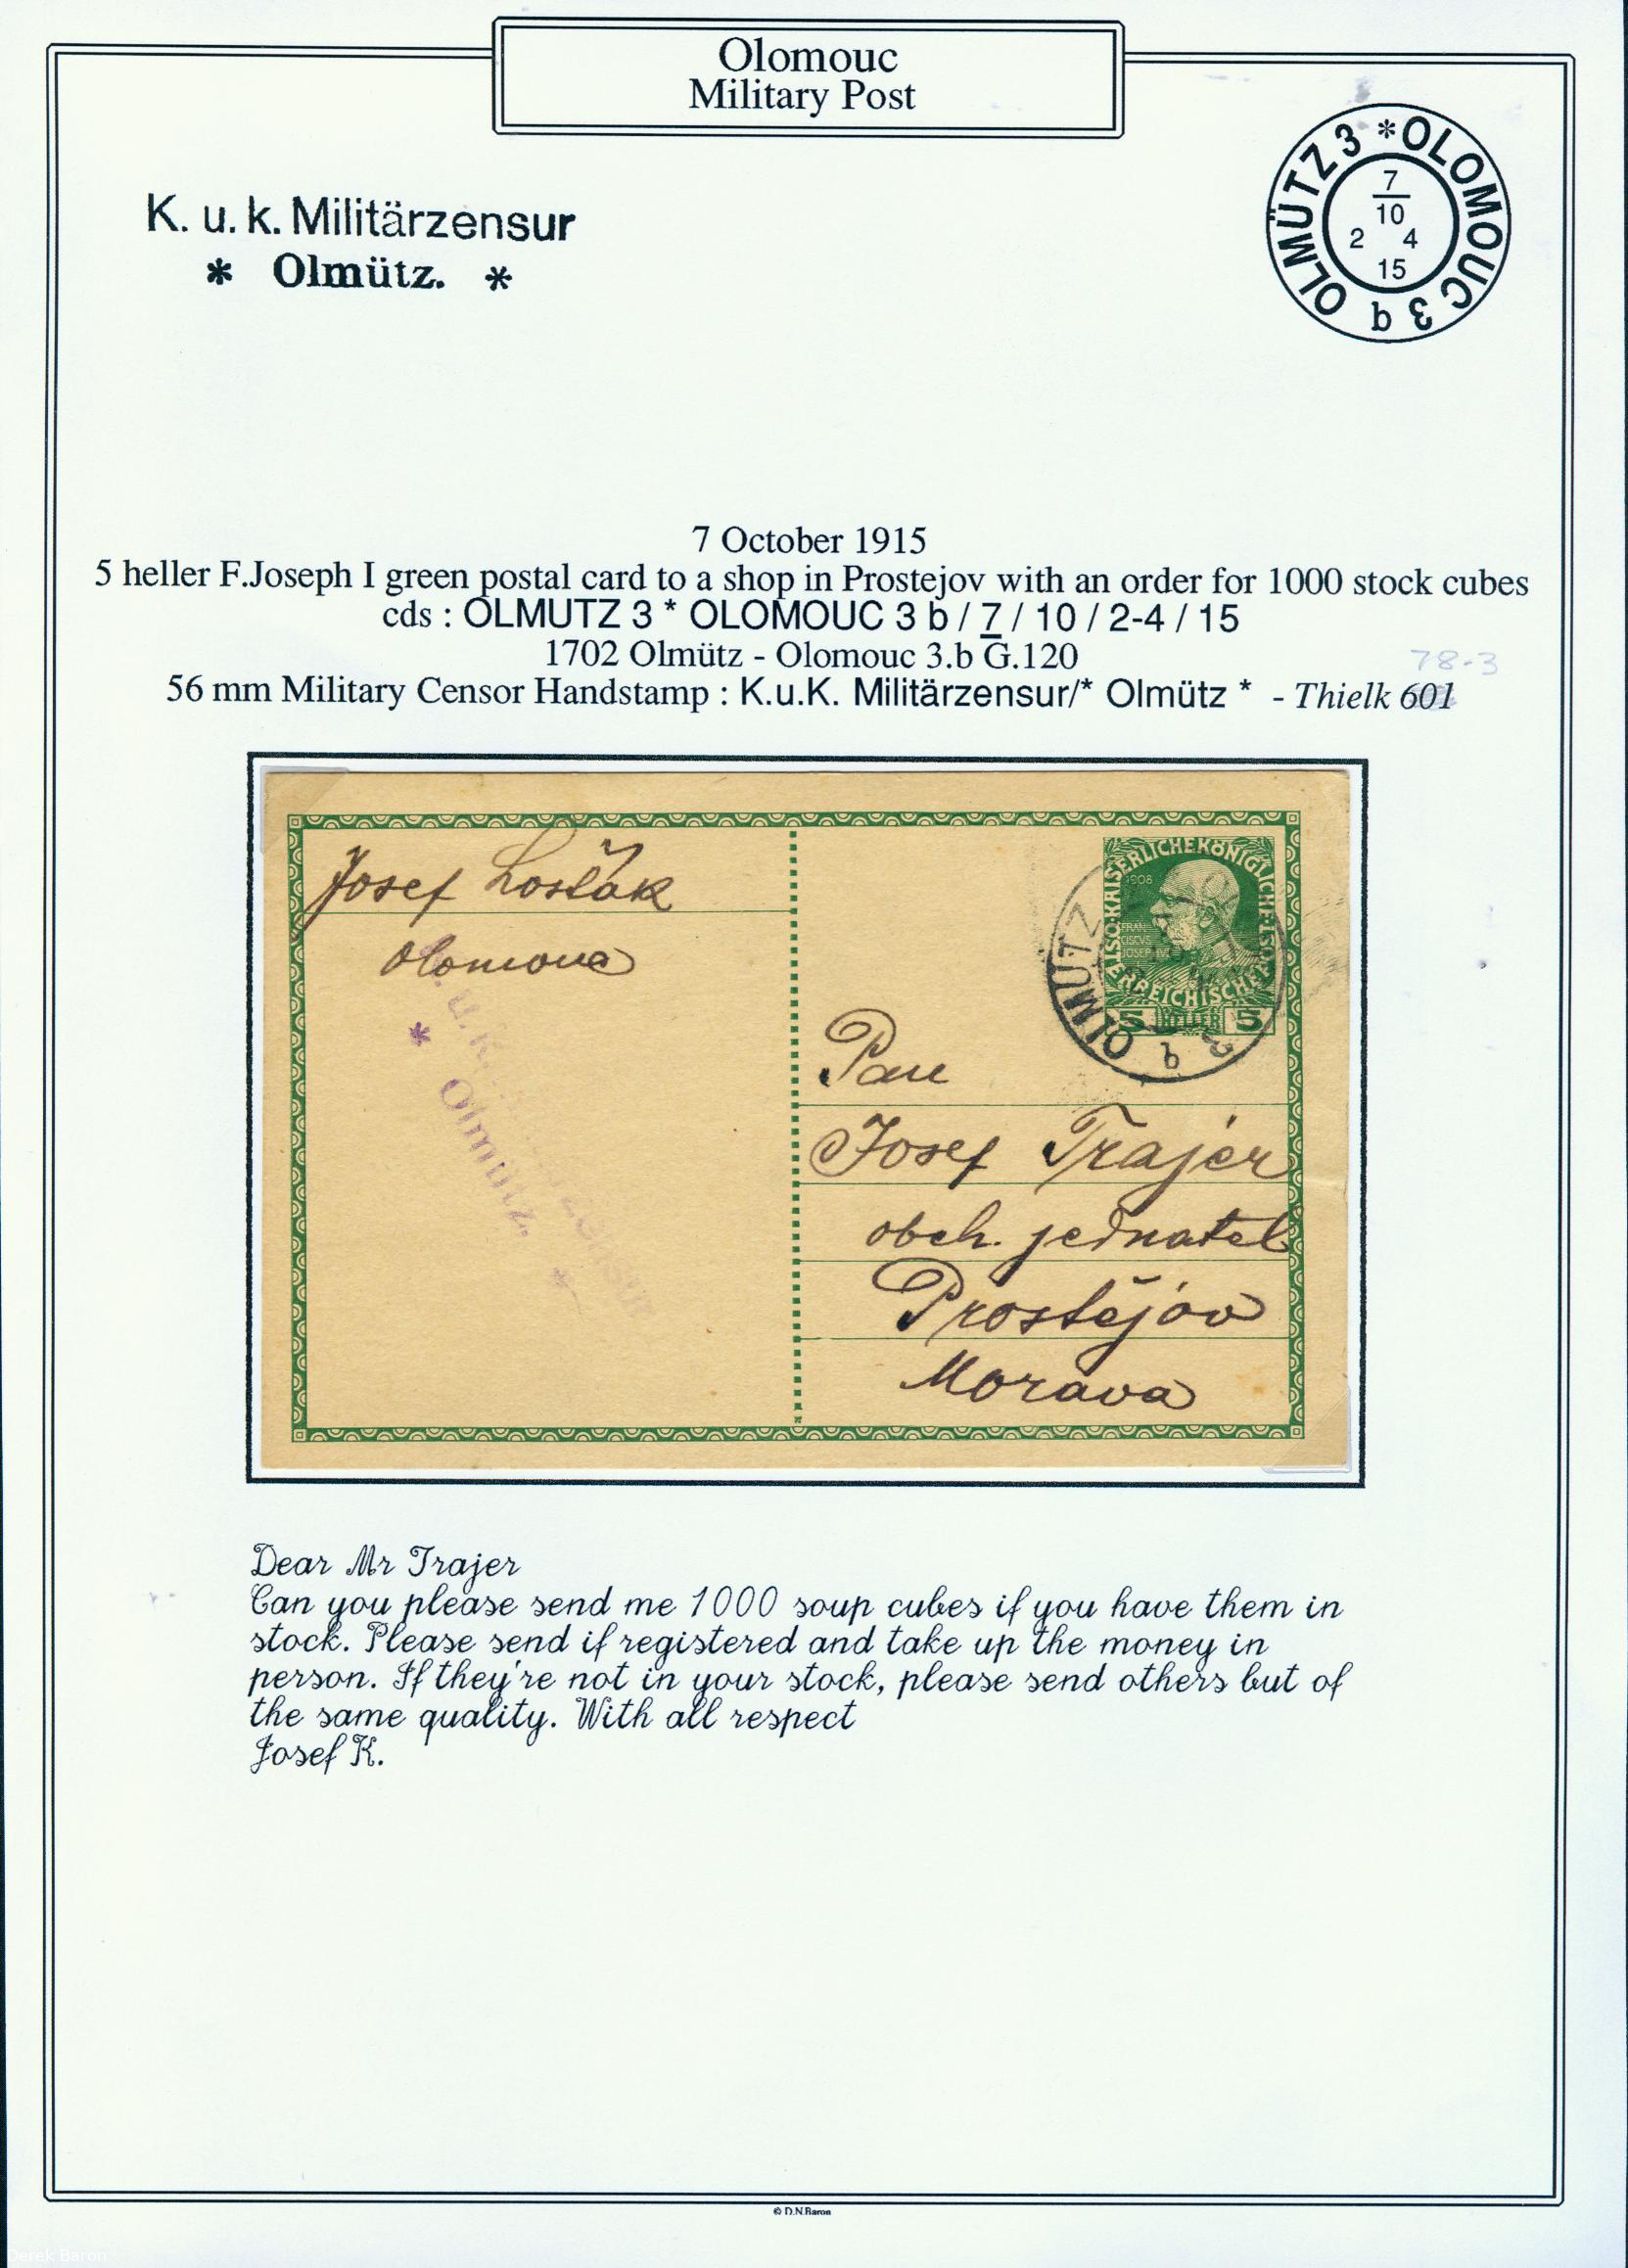 Olomouc
Military Post
K. u. k. Militärzensur
* Olmütz. *
OLMÜTZ 3 * OLOMOUC 3 b
7
10
2 4
15
7 October 1915
5 heller F.Joseph I green postal card to a shop in Prostejov with an order for 1000 stock cubes
cds : OLMUTZ 3 * OLOMOUC 3 b / 7 / 10 / 2-4 / 15
1702 Olmütz - Olomouc 3.b G.120
78-3
56 mm Military Censor Handstamp : K.u.K. Militärzensur/* Olmütz * - Thielk 601
Josef
Olomouc
* Olmütz. *
KAISERLICHE KÖNIGLICHE
ÖSTERREICHISCHE
1908
FRAN
CISCVS
JOSEPH
5 HELLER 5
OLMÜTZ
b 3
Pan
Josef Trajer
obch. jednatel
Prostějov
Morava
Dear Mr Trajer
Can you please send me 1000 soup cubes if you have them in
stock. Please send if registered and take up the money in
person. If they're not in your stock, please send others but of
the same quality. With all respect
Josef K.
© D.N.Baron
Derek Baron